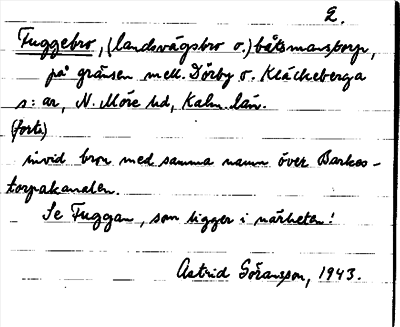 2.
Fuggebro, (landsvägsbro o.) båtsmanstorp,
på gränsen mell. Dörby o. Kläckeberga
s:ar, N. Möre hd, Kalm. län.
(forts)
invid bron med samma namn över Barkes-
torpakanalen.
Se Fuggan, som ligger i närheten!
Astrid Göransson, 1943.